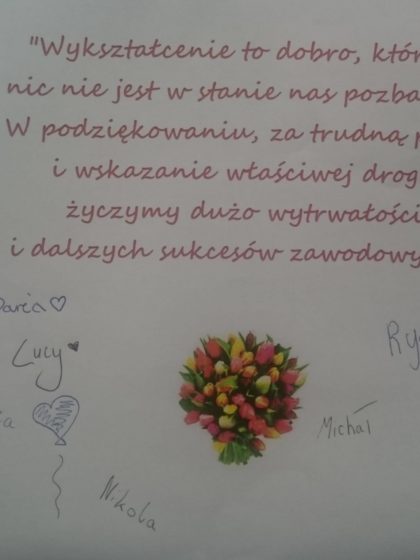 "Wykształcenie to dobro, któr
nic nie jest w stanie nas pozba
W podziękowaniu, za trudną p
i wskazanie właściwej drog
życzymy dużo wytrwałości
i dalszych sukcesów zawodowy
Daria
Lucy
Ry
Michał
Nikola